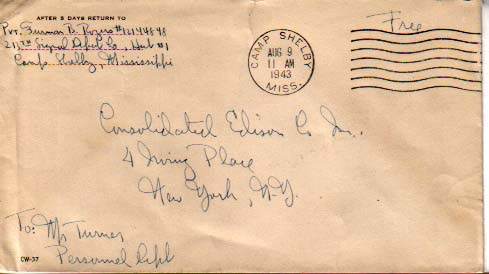 AFTER 5 DAYS RETURN TO
Pvt. B. Rogers
Signal Depot Co., Hut #1
Camp Shelby, Mississippi
CAMP SHELBY
AUG 9
11 AM
1943
MISS.
Free
Consolidated Edison Co Inc.
4 Irving Place
New York, N.Y.
To: Mr Turner
Personnel Dept
CW-37